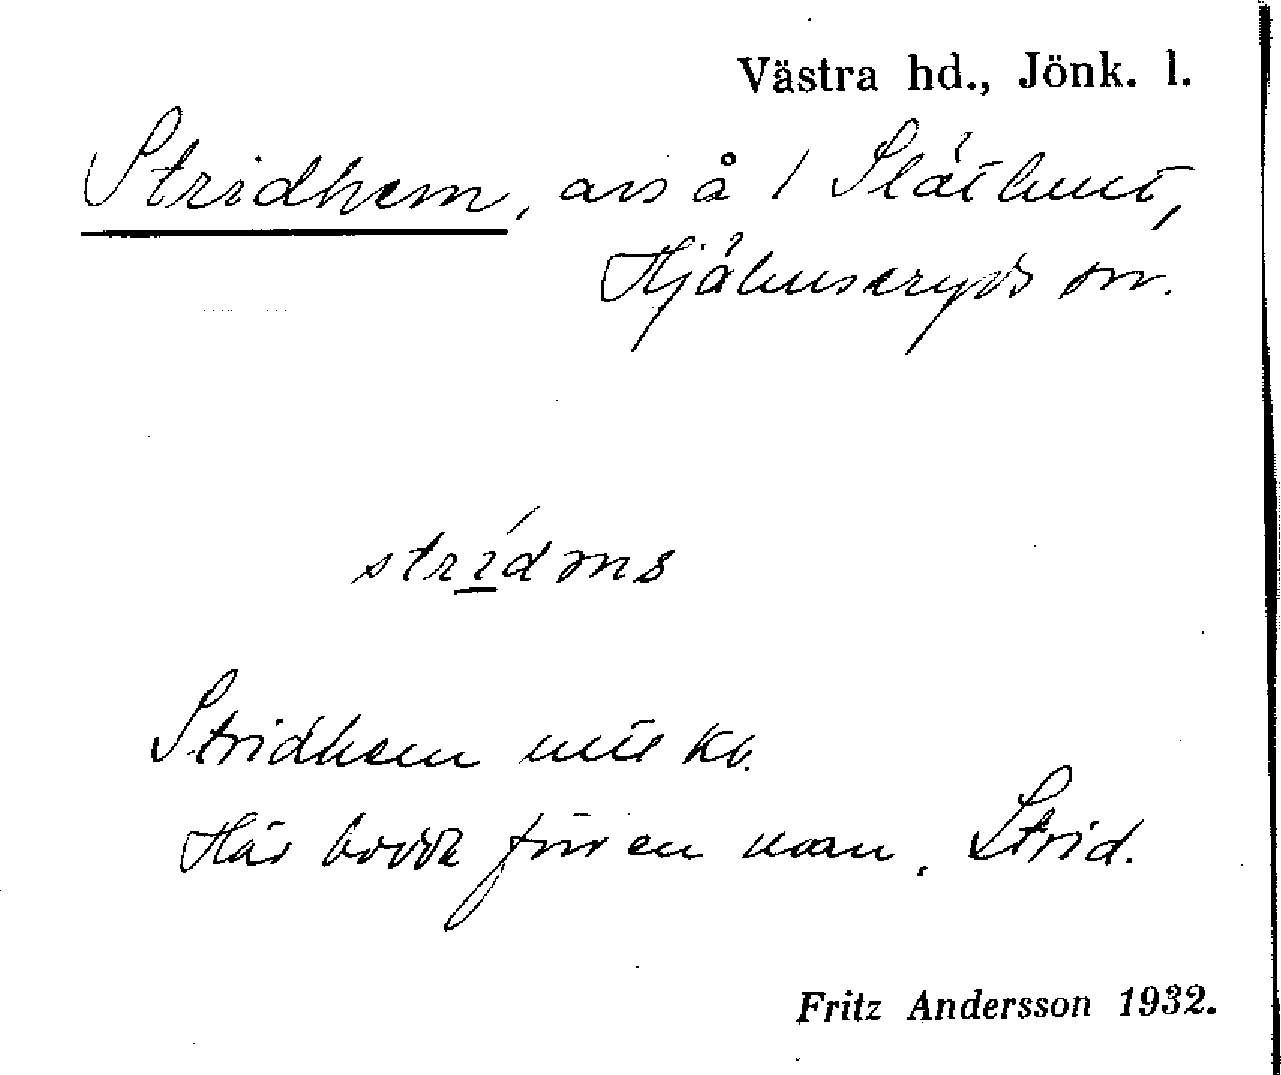 Västra hd., Jönk. l.
Stridhem, avs å 1 Slätthult,
Hjälmseryds sn.
Stridhem
Här bodde förr en man, Strid.
Fritz Andersson 1932.